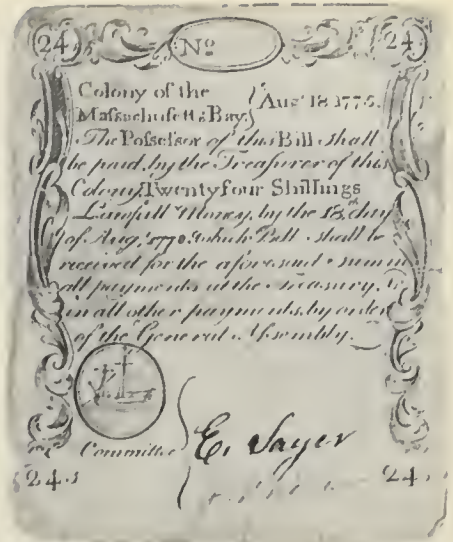 24 Nº 24
Colony of the
Massachusetts Bay } Augt 18 1775.
The Possessor of this Bill shall
be paid, by the Treasurer of this
Colony, Twenty four Shillings
Lawfull Money, by the 18th day
of Aug. 1778, which Bill shall be
received for the aforesaid sum in
all payments at the Treasury, &
in all other payments, by order
of the General Assembly.
Committee { E. Sayer
24s 24s